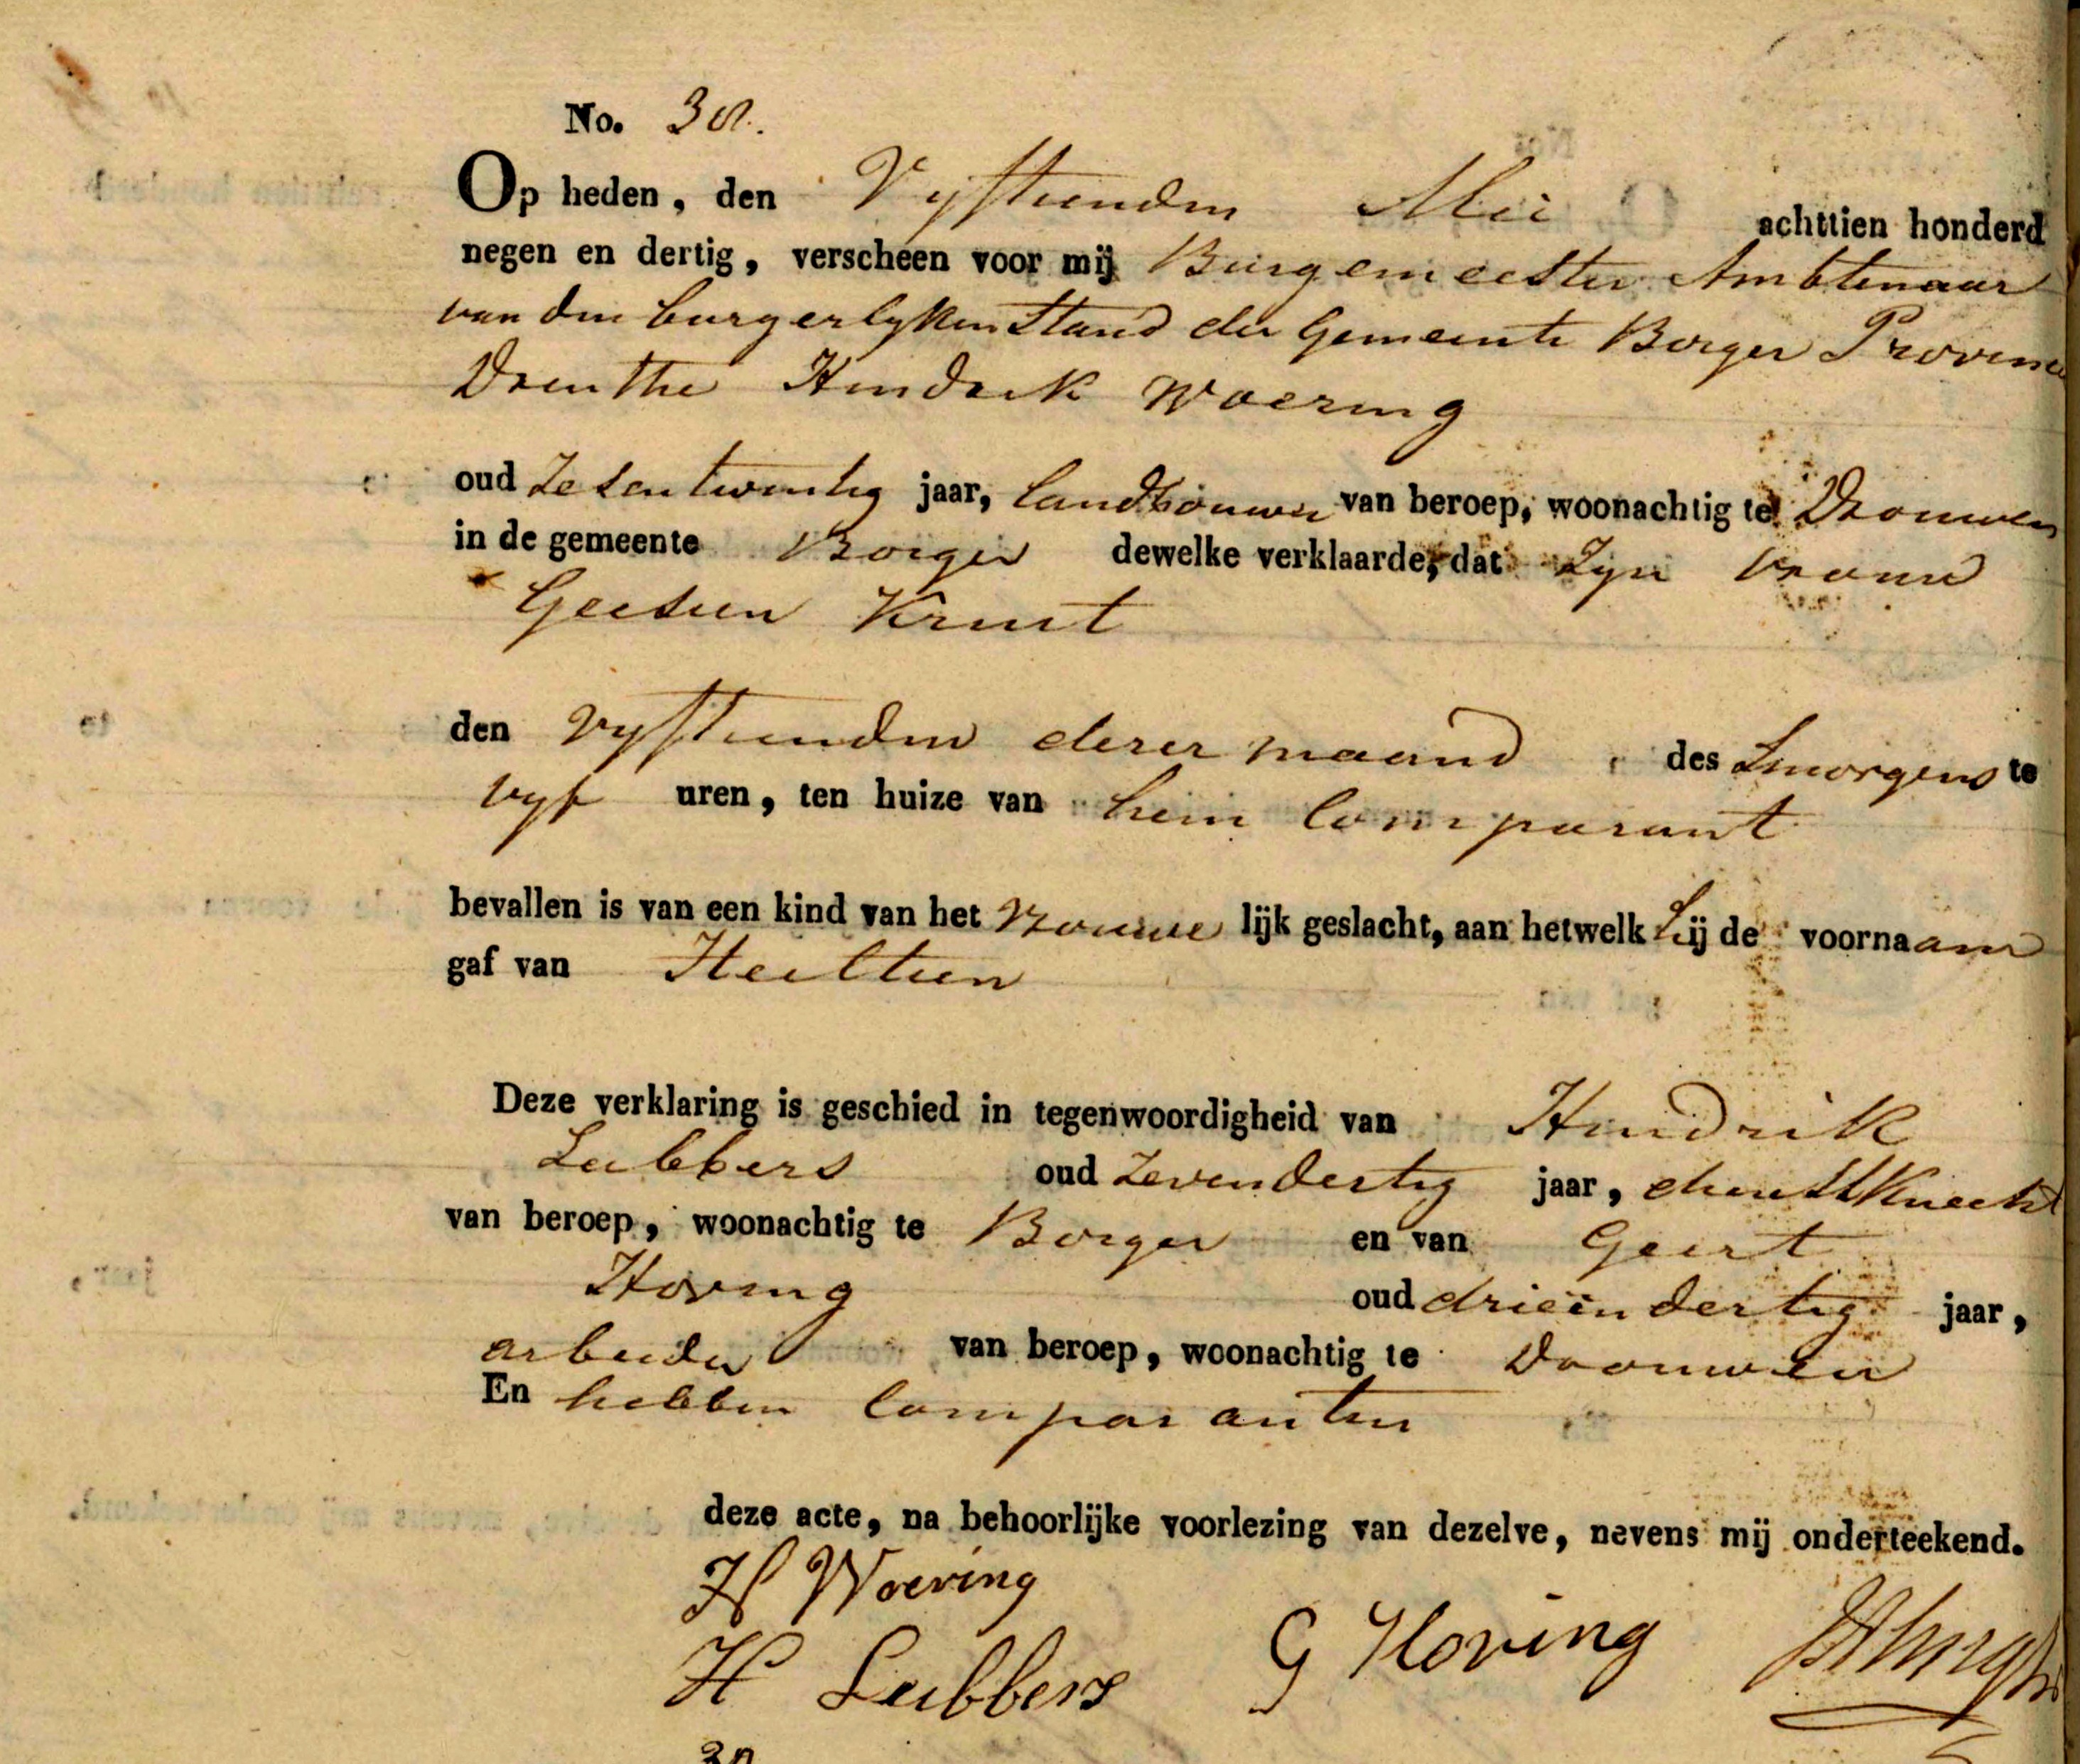 No. 38.
Op heden, den Vyftienden Mei achttien honderd
negen en dertig, verscheen voor mij Burgemeester Ambtenaar
van den burgerlyken Stand der Gemeente Borger Provincie
Drenthe Hendrik Woering
oud Zesentwintig jaar, landbouwer van beroep, woonachtig te Drouwen
in de gemeente Borger dewelke verklaarde, dat Zyn vrouw
Geesien Kruit
den vyftienden dezer maand des Smorgens te
vyf uren, ten huize van hem Comparant
bevallen is van een kind van het vrouwe lijk geslacht, aan hetwelk hij de voornaam
gaf van Heiltien
Deze verklaring is geschied in tegenwoordigheid van Hendrik
Lubbers oud Zevendertig jaar, dienstknecht
van beroep, woonachtig te Borger en van Geert
Hoving oud drieëndertig jaar,
arbeider van beroep, woonachtig te Drouwen
En hebben Comparanten
deze acte, na behoorlijke voorlezing van dezelve, nevens mij onderteekend.
H Woering
H Lubbers G Hoving